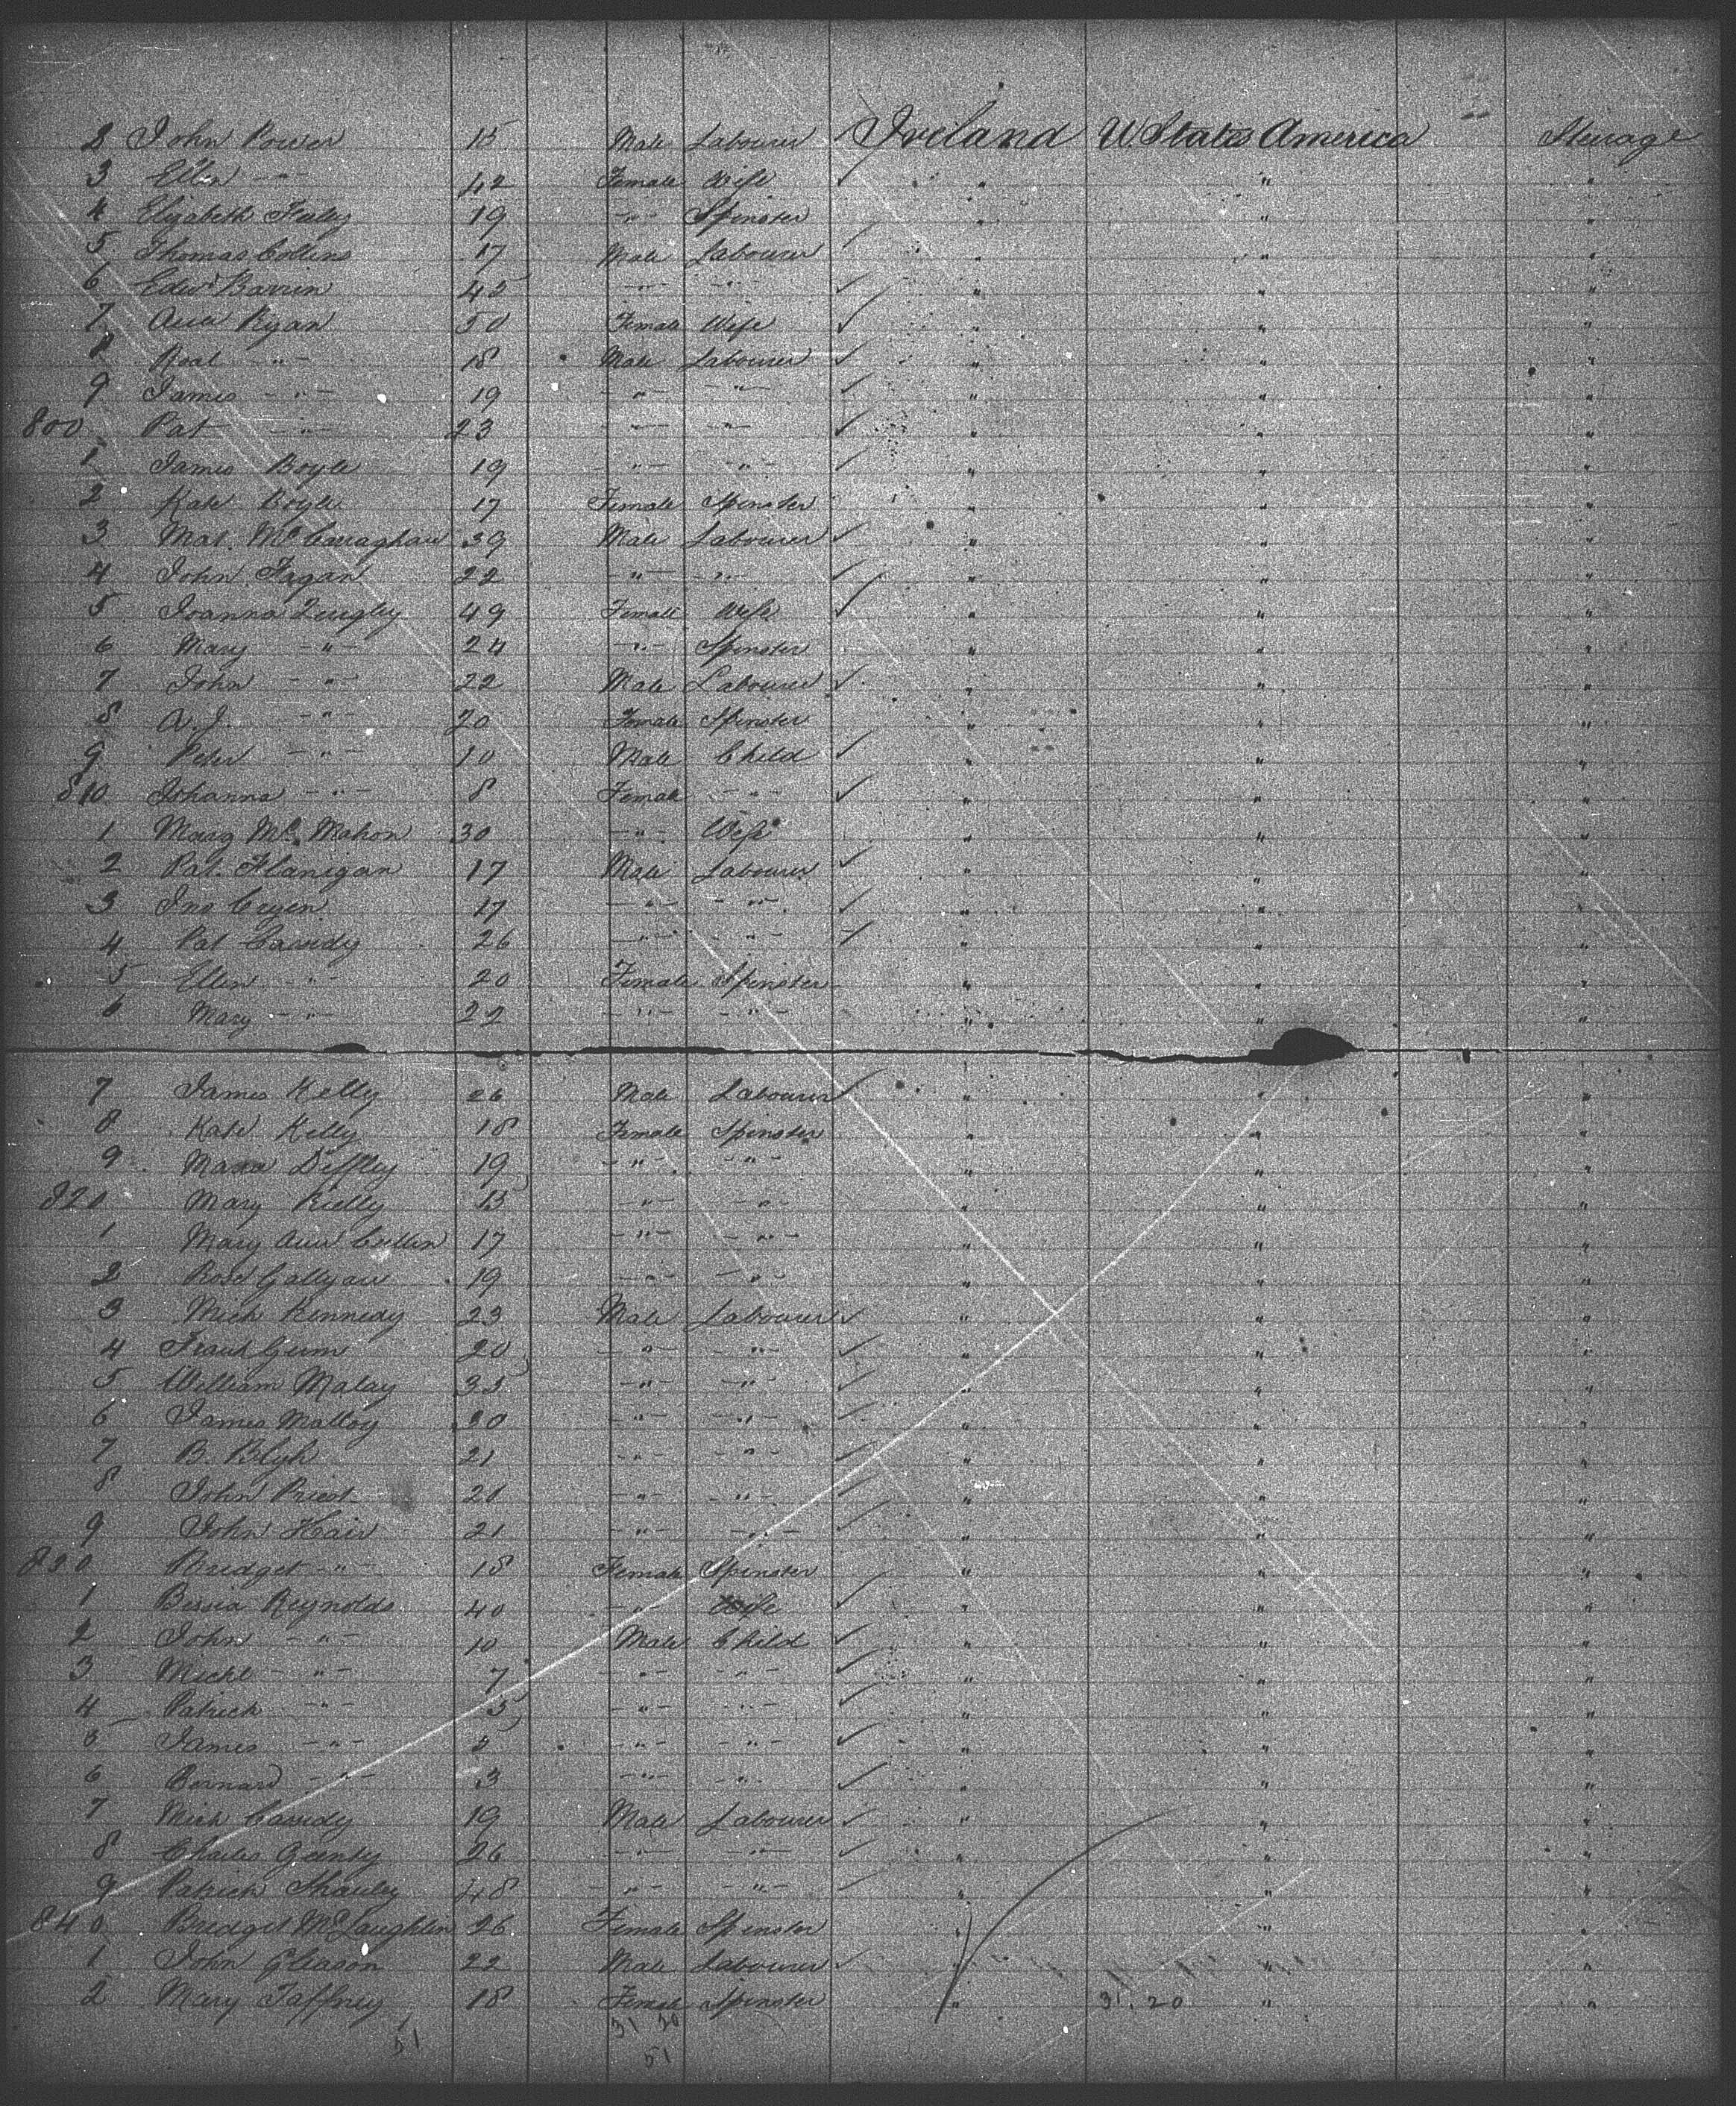 2 John Power 15 Male Labourer Ireland U. States America Steerage
3 Ellen -"- 42 Female Wife " " "
4 Elizabeth 19 -"- Spinster " " "
5 Thomas Collins 17 Male Labourer " " "
6 Edwd Barrin 45 -"- -"- " " "
7 Ann Ryan 50 Female Wife " " "
8 -"- 18 Male Labourer " " "
9 James -"- 19 -"- -"- " " "
800 Pat -"- 23 -"- -"- " " "
1 James Boyle 19 -"- -"- " " "
2 Kate Boyle 17 Female Spinster " " "
3 Mat. 39 Male Labourer " " "
4 John Fagan 22 -"- -"- " " "
5 Joanna 49 Female Wife " " "
6 Mary -"- 24 -"- Spinster " " "
7 John -"- 22 Male Labourer " " "
8 A. J. -"- 20 Female Spinster " " "
9 Peter -"- 10 Male Child " " "
810 Johanna -"- 8 Female -"- " " "
1 Marg McMahon 30 -"- Wife " " "
2 Pat. Flanigan 17 Male Labourer " " "
3 Jno 17 -"- -"- " " "
4 Pat Cassidy 26 -"- -"- " " "
5 Ellen -"- 20 Female Spinster " " "
6 Mary -"- 22 -"- -"- " " "
7 James Kelly 26 Male Labourer " " "
8 Kate Kelly 18 Female Spinster " " "
9 Maria Deffley 19 -"- -"- " " "
820 Mary Rielly -"- -"- " " "
1 Mary Ann Cullen 17 -"- -"- " " "
2 Rose 19 -"- -"- " " "
3 Mich Kennedy 23 Male Labourer " " "
4 Frank 20 -"- -"- " " "
5 William Malay 35 -"- -"- " " "
6 James Malloy -"- -"- " " "
7 B. Bligh 21 -"- -"- " " "
8 John Priest -"- -"- " " "
9 John Hair 21 -"- -"- " " "
830 Bridget -"- 18 Female Spinster " " "
1 Bessia Reynolds 40 -"- Wife " " "
2 John -"- 10 Male Child " " "
3 Michl -"- 7 -"- -"- " " "
4 Patrick -"- 5 -"- -"- " " "
5 James -"- -"- -"- " " "
6 Bernard -"- 3 -"- -"- " " "
7 Mich Cassidy 19 Male Labourer " " "
8 Charles 26 -"- -"- " " "
9 Patrick Shanley 48 -"- -"- " " "
840 Bridget McLaughlin 26 Female Spinster " " "
1 John Gleason 22 Male Labourer " " "
2 Mary Taffney 18 Female Spinster " 31. 20 " "
51 31 20
51